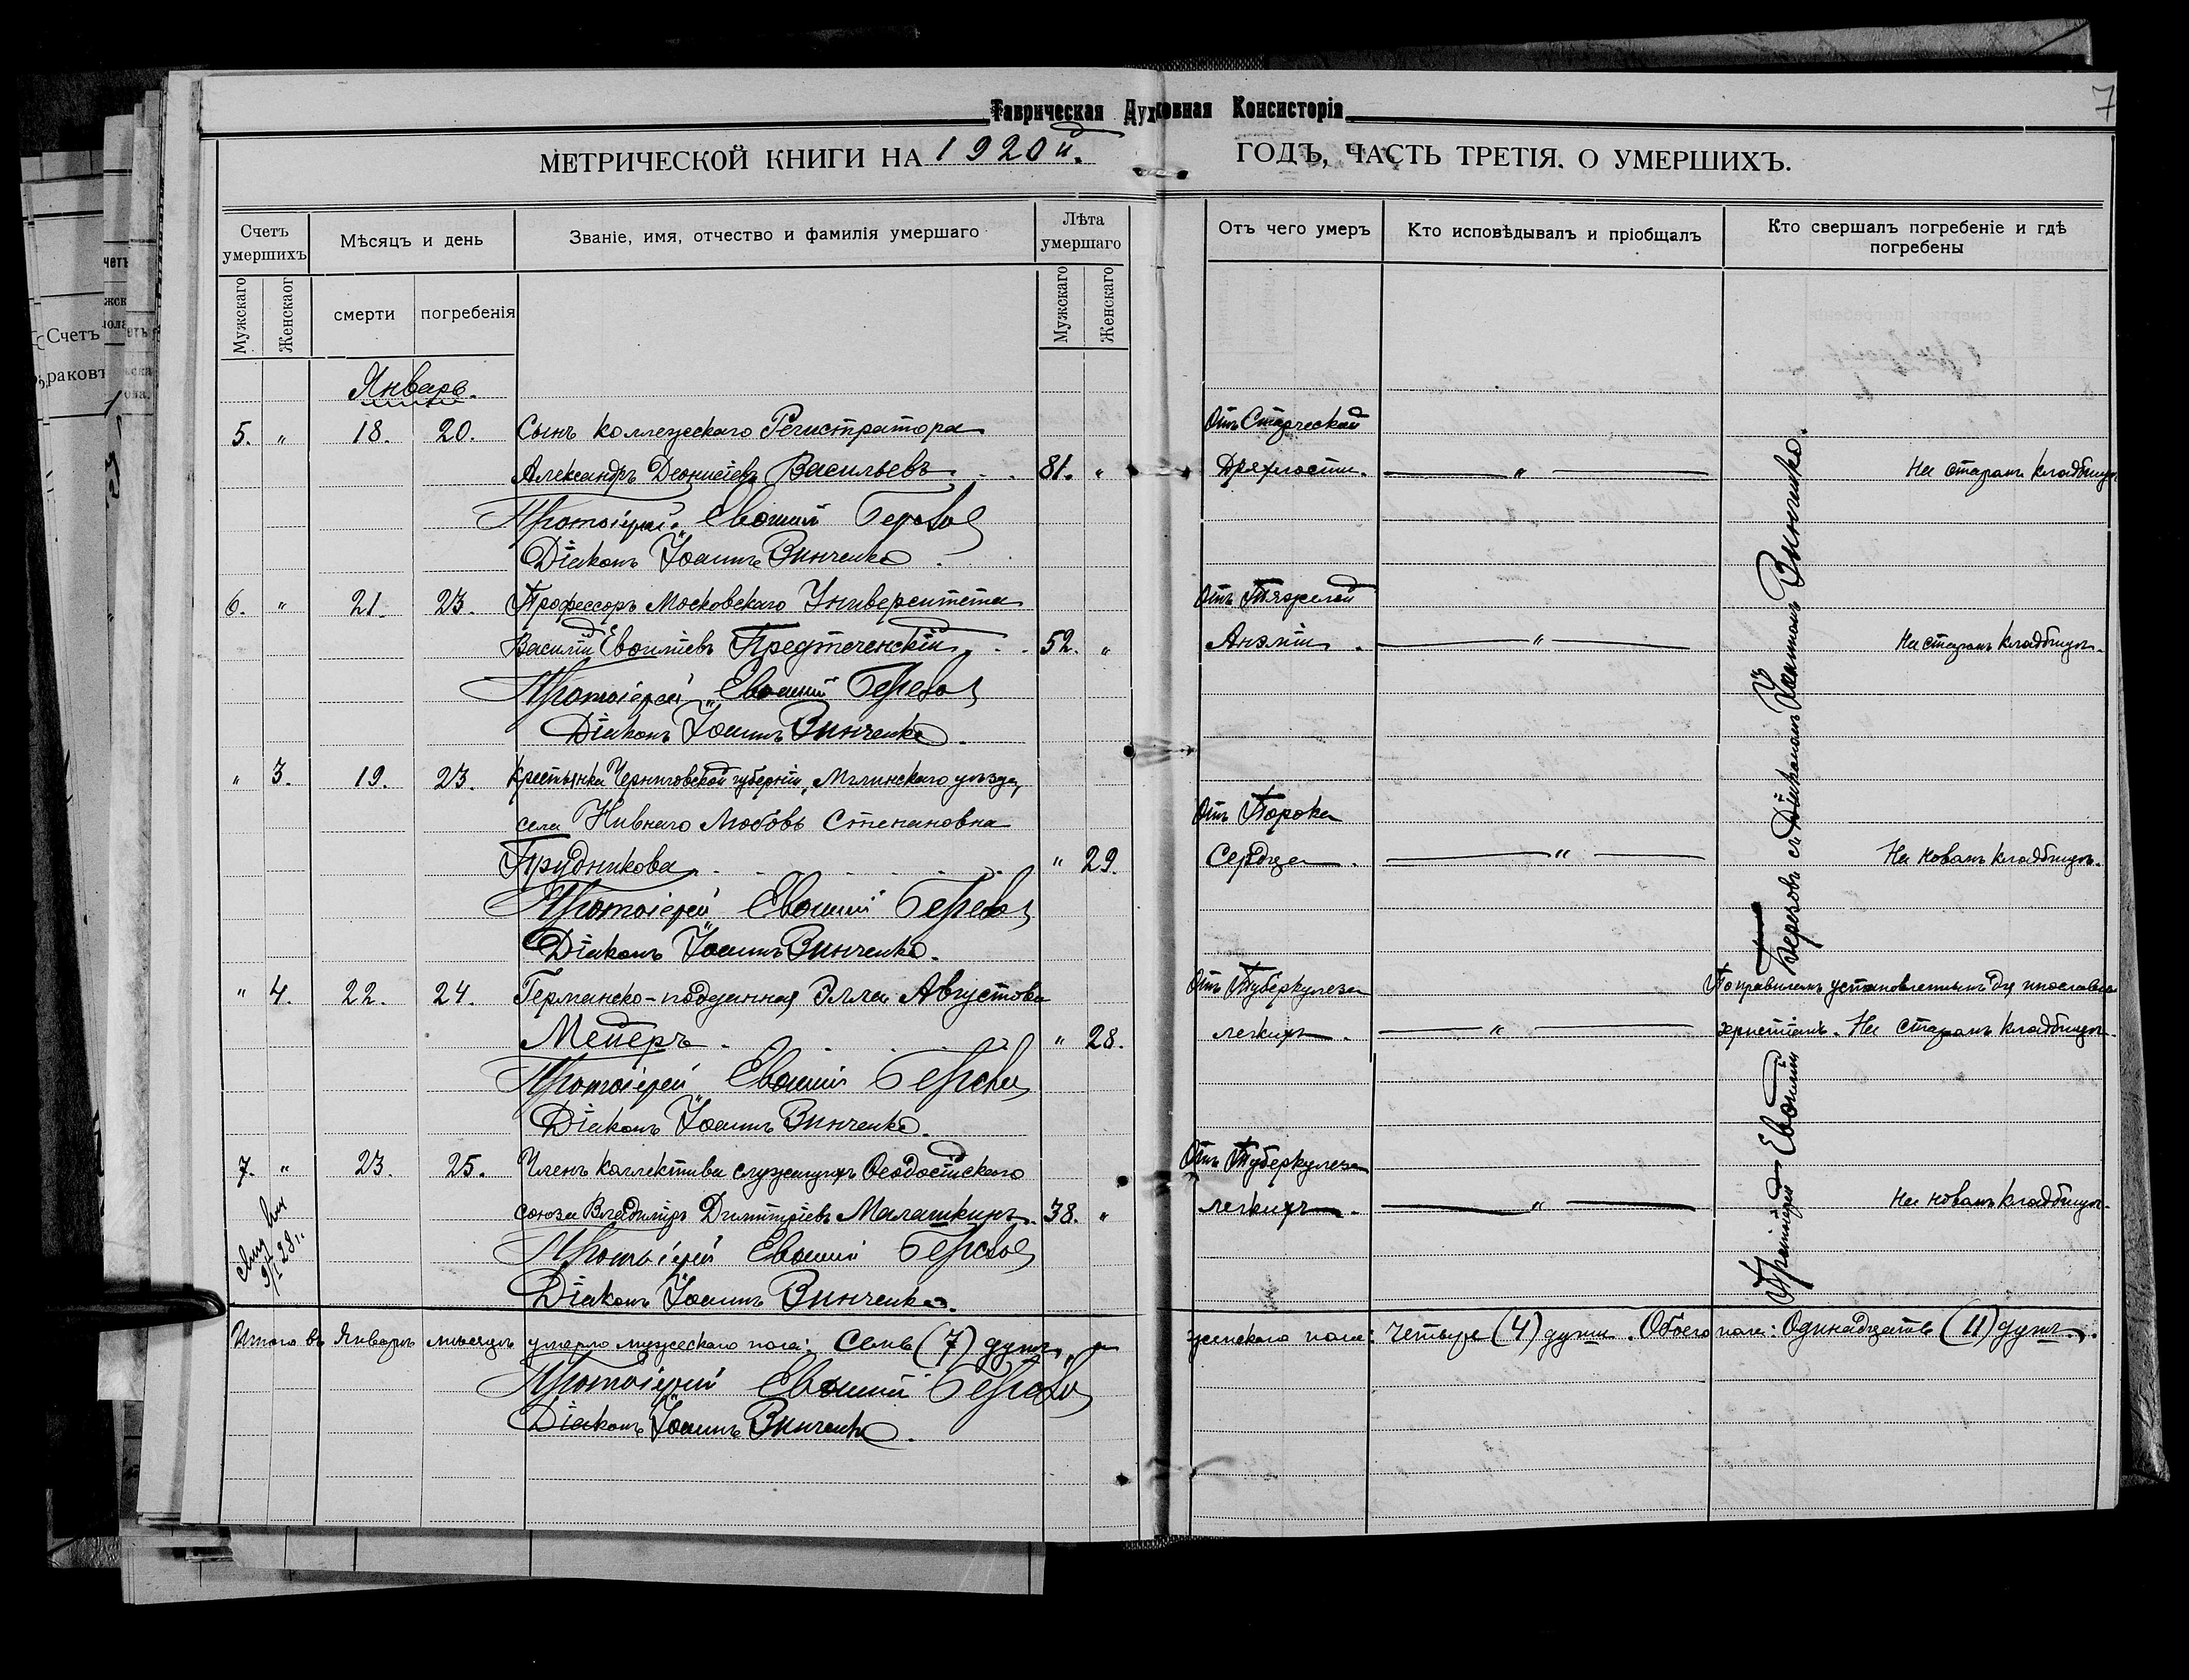 Таврическая Духовная Консисторія
7
МЕТРИЧЕСКОЙ КНИГИ НА 1920й. ГОДЪ, ЧАСТЬ ТРЕТІЯ. О УМЕРШИХЪ.
Счетъ умершихъ
Мѣсяцъ и день
Званіе, имя, отчество и фамилія умершаго
Лѣта умершаго
Отъ чего умеръ
Кто исповѣдывалъ и пріобщалъ
Кто свершалъ погребеніе и гдѣ погребены
Мужскаго
Женскаог
смерти
погребенія
Мужскаго
Женскаго
Январь.
5. " 18. 20. Сынъ Коллежскаго Регистратора
Отъ Старческой
Александръ Діонисіевъ Васильевъ 81. "
Дряхлости. " На старомъ кладбищѣ
Протоіерей Евѳимій Березовъ
Діаконъ Іоаннъ Винченко.
6. " 21. 23. Профессоръ Московскаго Университета
Отъ Тяжелой
Василій Евѳиміевъ Предтеченскій 52. "
Анэміи. " На старомъ кладбищѣ.
Протоіерей Евѳимій Березовъ
Діаконъ Іоаннъ Винченко.
" 3. 19. 23. Крестьянка Черниговской губерніи, Мглинскаго уѣзда,
села Нивнаго Любовь Степановна
Отъ Порока
Прудникова " 29.
Сердца. " На новомъ кладбищѣ.
Протоіерей Евѳимій Березовъ
Діаконъ Іоаннъ Винченко.
" 4. 22. 24. Германско-подданная Элла Августова
Отъ Туберкулеза По правиламъ установленнымъ для инославныхъ
Мейеръ " 28.
легкихъ. " христіанъ. На старомъ кладбищѣ.
Протоіерей Евѳимій Березовъ
Діаконъ Іоаннъ Винченко.
7. " 23. 25. Членъ Коллектива служащихъ Ѳеодосійскаго
Отъ Туберкулеза
союза Владиміръ Димитріевъ Малашкинъ. 38. "
легкихъ. " На новомъ кладбищѣ.
Протоіерей Евѳимій Березовъ
Діаконъ Іоаннъ Винченко.
Протоіерей Евѳимій Березовъ съ Діакономъ Іоанномъ Винченко.
Итого въ Январѣ мѣсяцѣ умерло мужескаго пола: Семь (7) душъ, а женскаго пола: четыре (4) души. Обоего пола: Одинадцать (11) душъ.
Протоіерей Евѳимій Березовъ
Діаконъ Іоаннъ Винченко.
Счетъ
раковъ